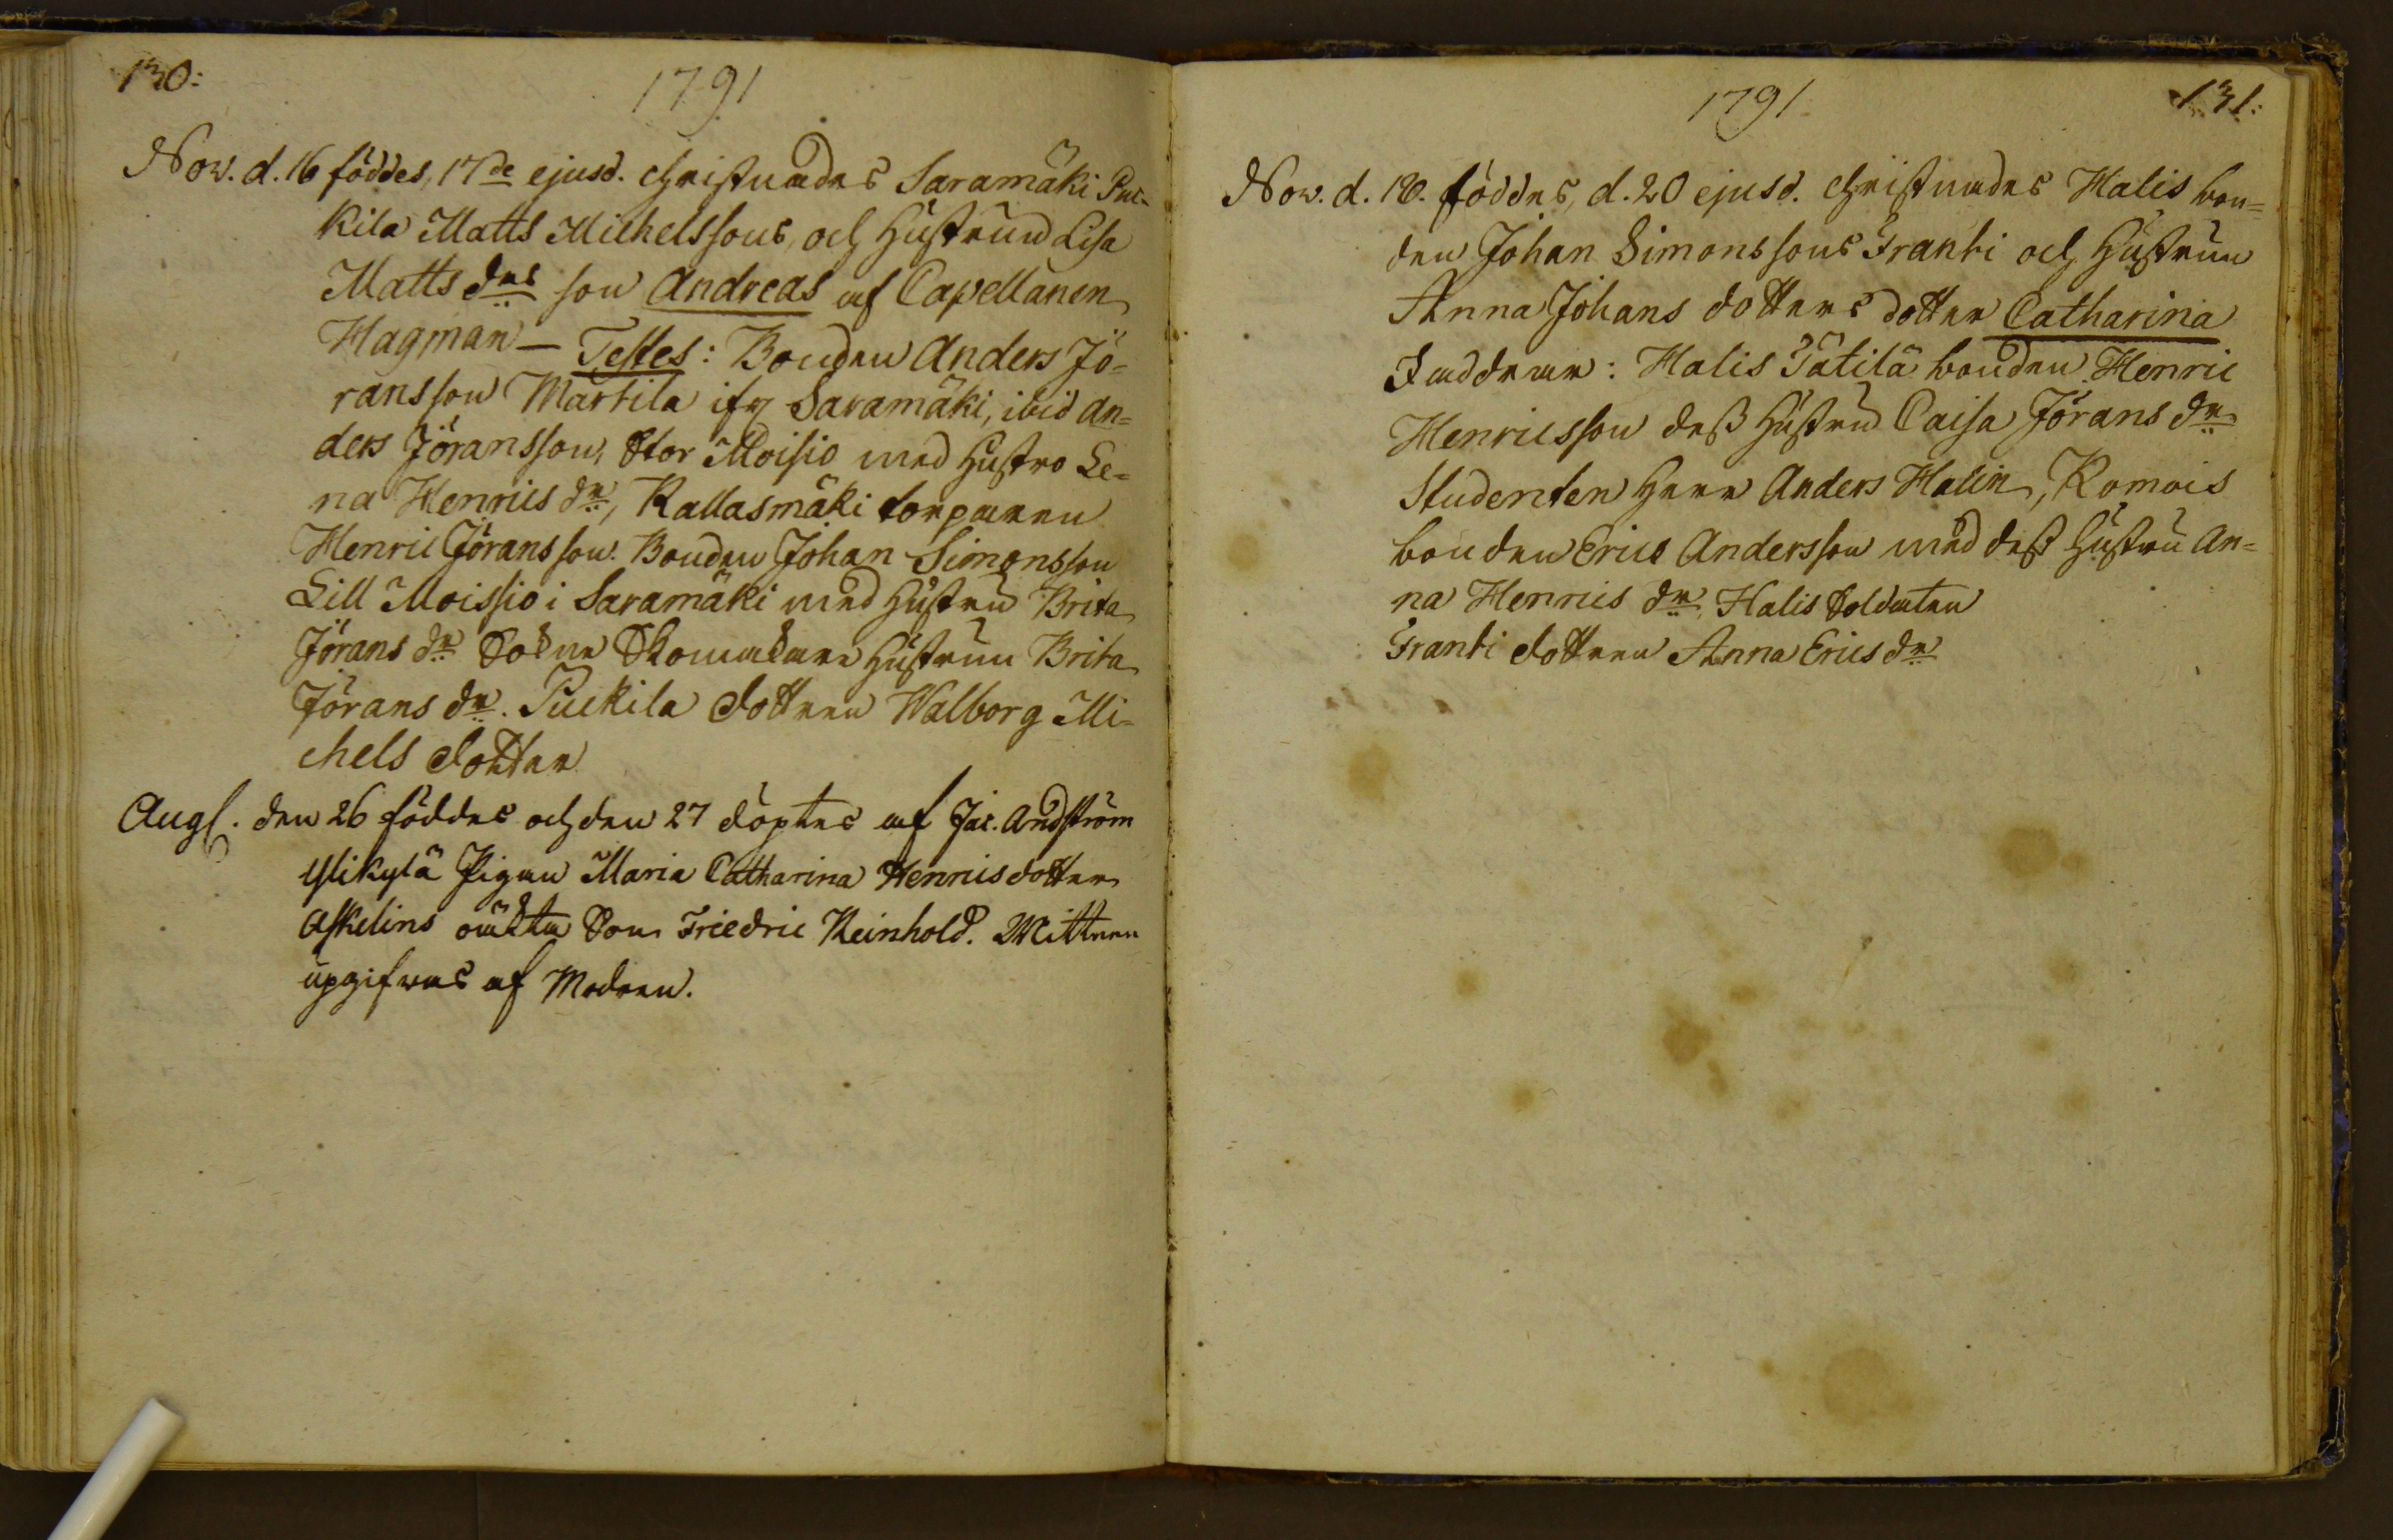 130:
1791
Nov. d. 16 föddes, 17de ejusd. christnades Saramäki Puc-
kila Matts Michelssons, och Hustrun Lisa
Matts drs son Andreas af Capellanen
Hagman — Testes: Bonden Anders Jö-
ransson Martila ifr Saramäki, ibid An-
ders Jöransson, Stor Moisio med Hustro Le-
na Henrics dr, Kallasmäki torparen
Henric Jöransson. Bonden Johan Simonsson
Lill Moissio i Saramäki med Hustru Brita
Jörans dr Sokne Skomakare Hustrun Brita
Jörans dr. Puckila dottren Walborg Mi-
chels dotter
Aug. den 26 föddes och den 27 döptes af Jac. Andström
Ylikylä Pigan Maria Catharina Henricsdotter
Askelins oäkta Son Friedric Reinhold. Wittnen
upgifvas af Modren.
1791
131:
Nov. d. 18. föddes, d. 20 ejusd. christnades Halis bon-
den Johan Simonssons Franti och Hustrun
Anna Johans dotters dotter Catharina
Faddrar: Halis Tätilä bonden Henric
Henricsson dess Hustru Caisa Jörans dr
Studenten Herr Anders Halin, Komois
bonden Erics Andersson med dess Hustru An-
na Henrics dr, Halis Soldaten
Franti dottren Anna Erics dr